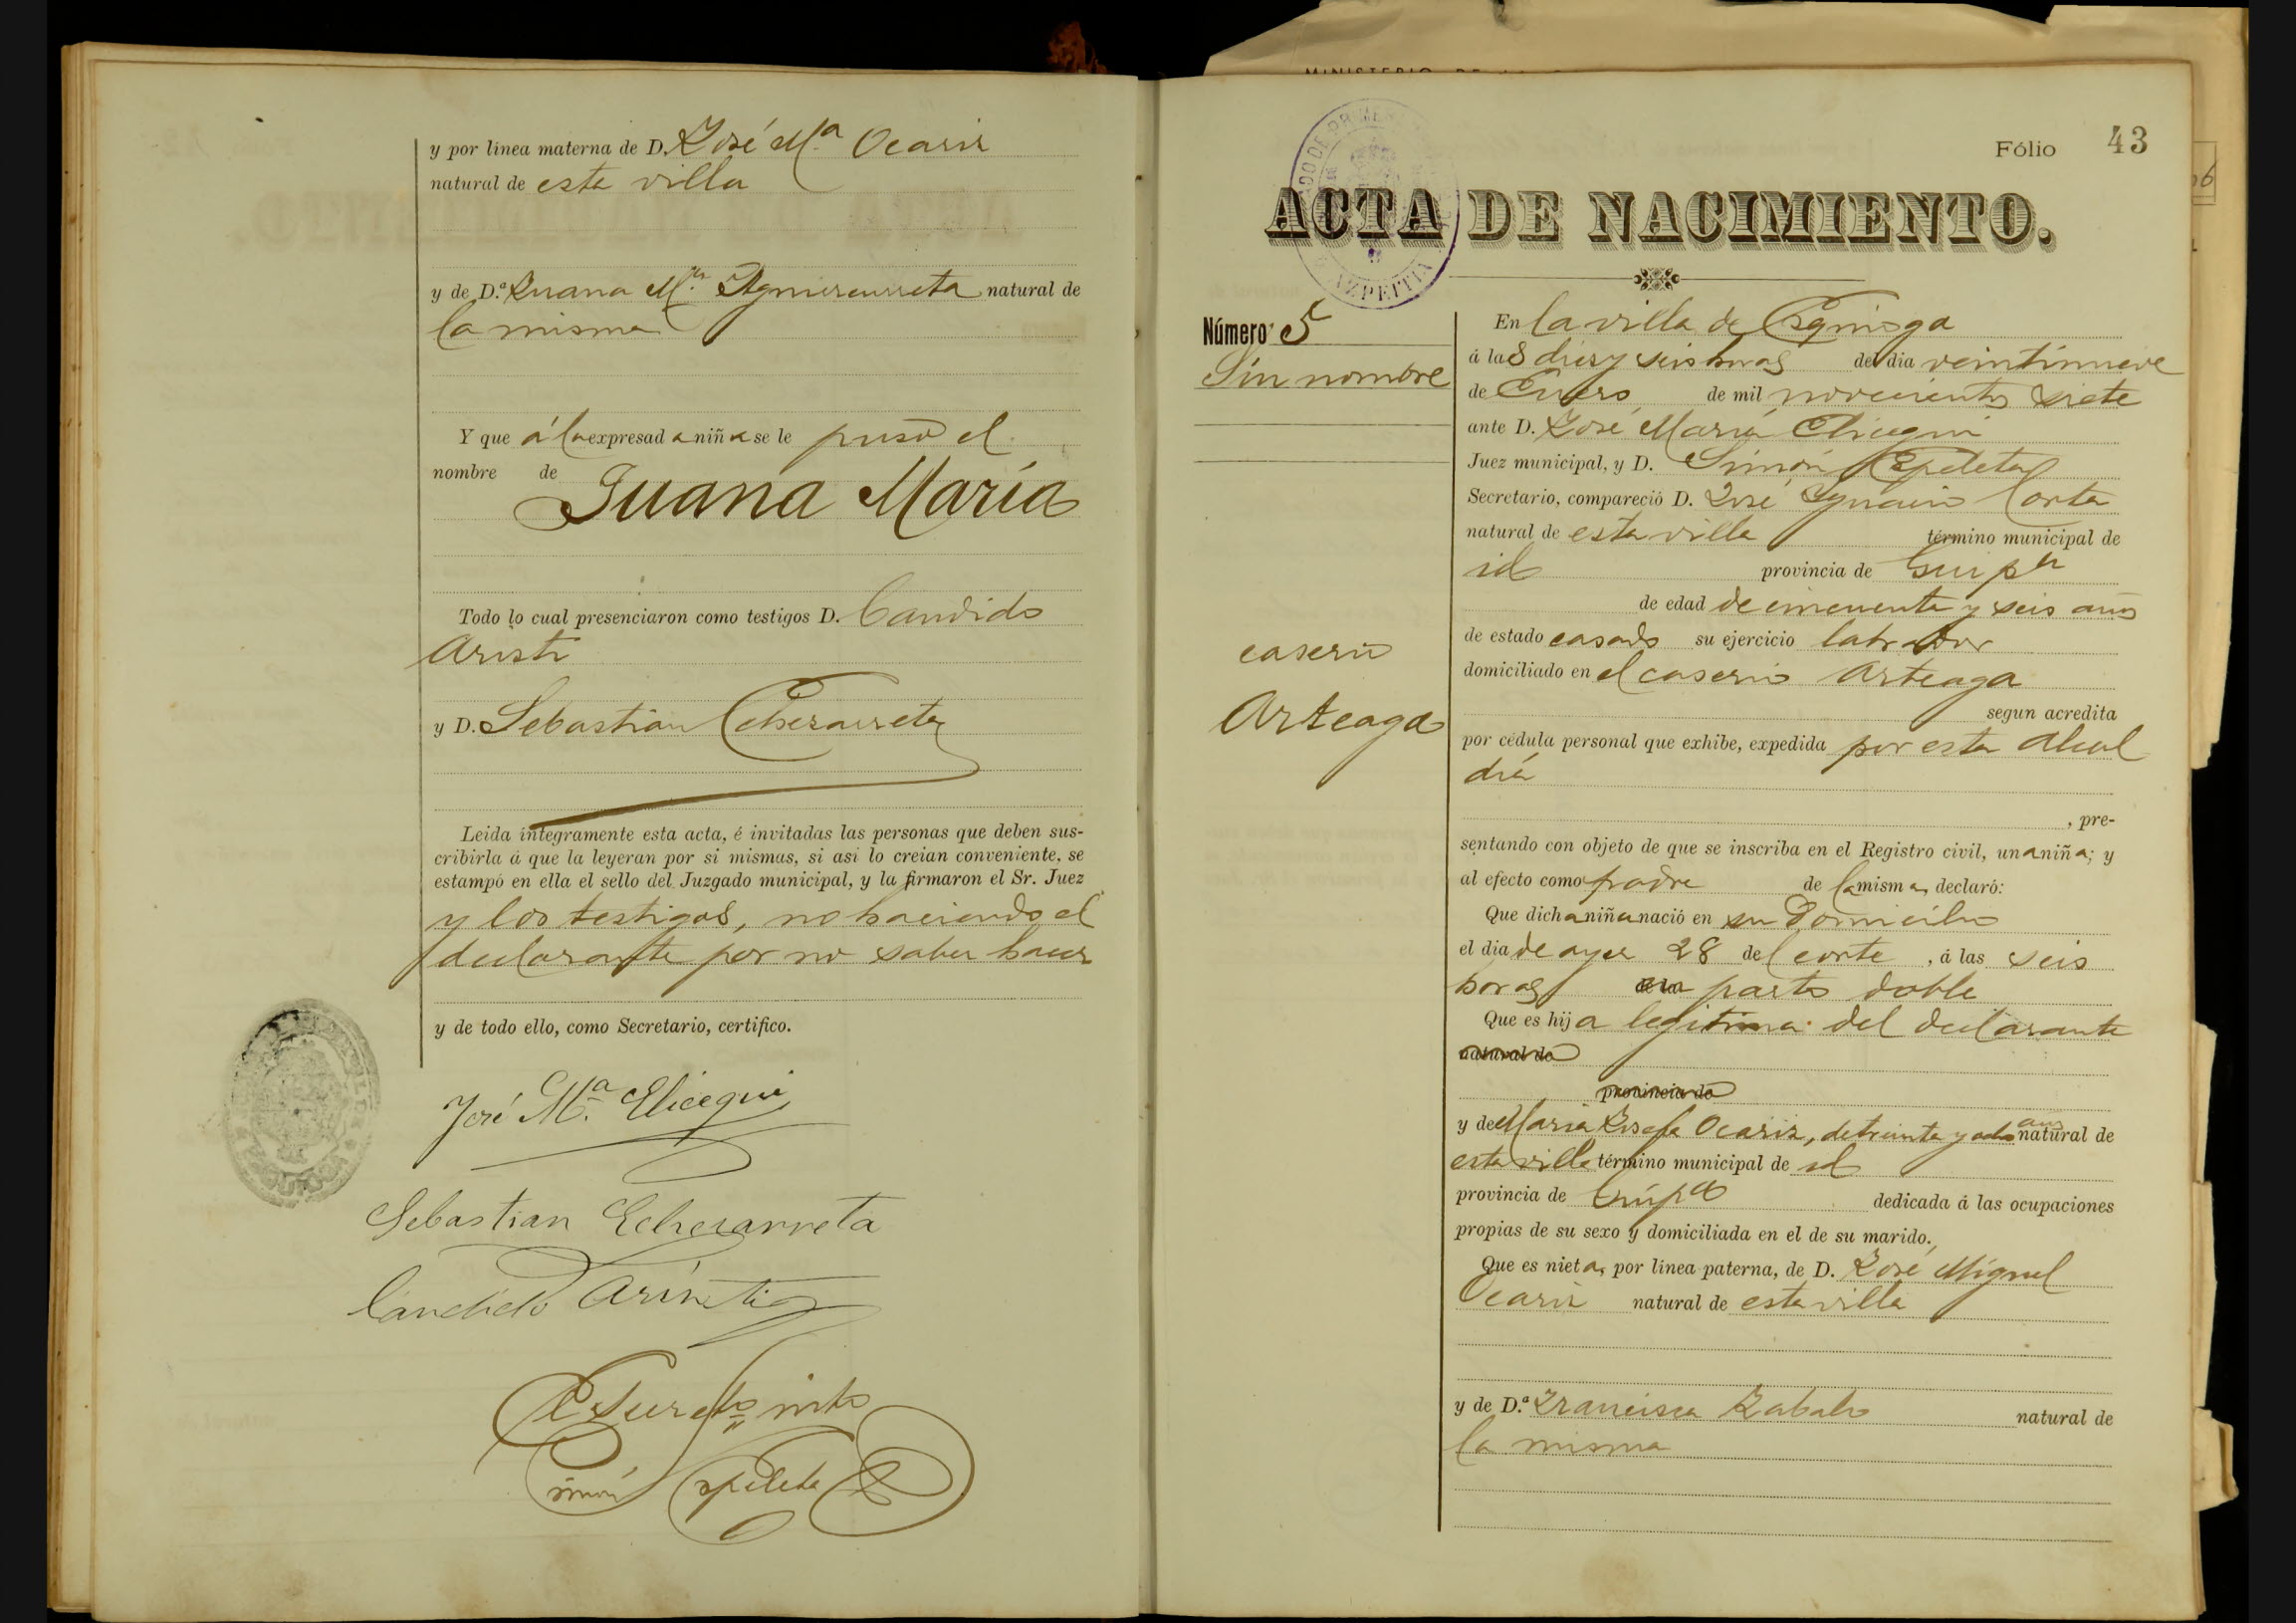 y por línea materna de D. José Mª Ocariz
natural de esta villa
y de D.ª Juana Mª Aguirreurreta natural de
la misma
Y que á la expresada niña se le puso el
nombre de
Juana María
Todo lo cual presenciaron como testigos D. Candido
Aristi
y D. Sebastian Echezarreta
Leida íntegramente esta acta, é invitadas las personas que deben sus-
cribirla á que la leyeran por si mismas, si asi lo creian conveniente, se
estampó en ella el sello del Juzgado municipal, y la firmaron el Sr. Juez
y los testigos, no haciendo el
declarante por no saber hacer
y de todo ello, como Secretario, certifico.
José Mª Elicegui
Sebastian Echezarreta
Cándido
Simón Ezpeleta
MINISTERIO DE
Fólio 43
ACTA DE NACIMIENTO.
AZPEITIA
Número 5
Sin nombre
caserio
Arteaga
En la villa de Ezquioga
á las diez y seis horas del dia veintinueve
de Enero de mil novecientos siete
ante D. José María Elicegui
Juez municipal, y D. Simón Ezpeleta
Secretario, compareció D. José Ygnacio Corta
natural de esta villa término municipal de
id provincia de Guipª
de edad de cincuenta y seis años
de estado casado su ejercicio labrador
domiciliado en el caserio Arteaga
segun acredita
por cédula personal que exhibe, expedida por esta Alcal
día
, pre-
sentando con objeto de que se inscriba en el Registro civil, una niña; y
al efecto como padre de la misma, declaró:
Que dicha niña nació en su domicilio
el dia de ayer 28 del corte, á las seis
horas parto doble
Que es hija legitima del declarante
natural de
provincia de
y de Maria Josefa Ocariz, de treinta y ocho años natural de
esta villa término municipal de id
provincia de Guipª dedicada á las ocupaciones
propias de su sexo y domiciliada en el de su marido.
Que es nieta, por línea paterna, de D. José Miguel
Ocariz natural de esta villa
y de D.ª Francisca Zabalo natural de
la misma